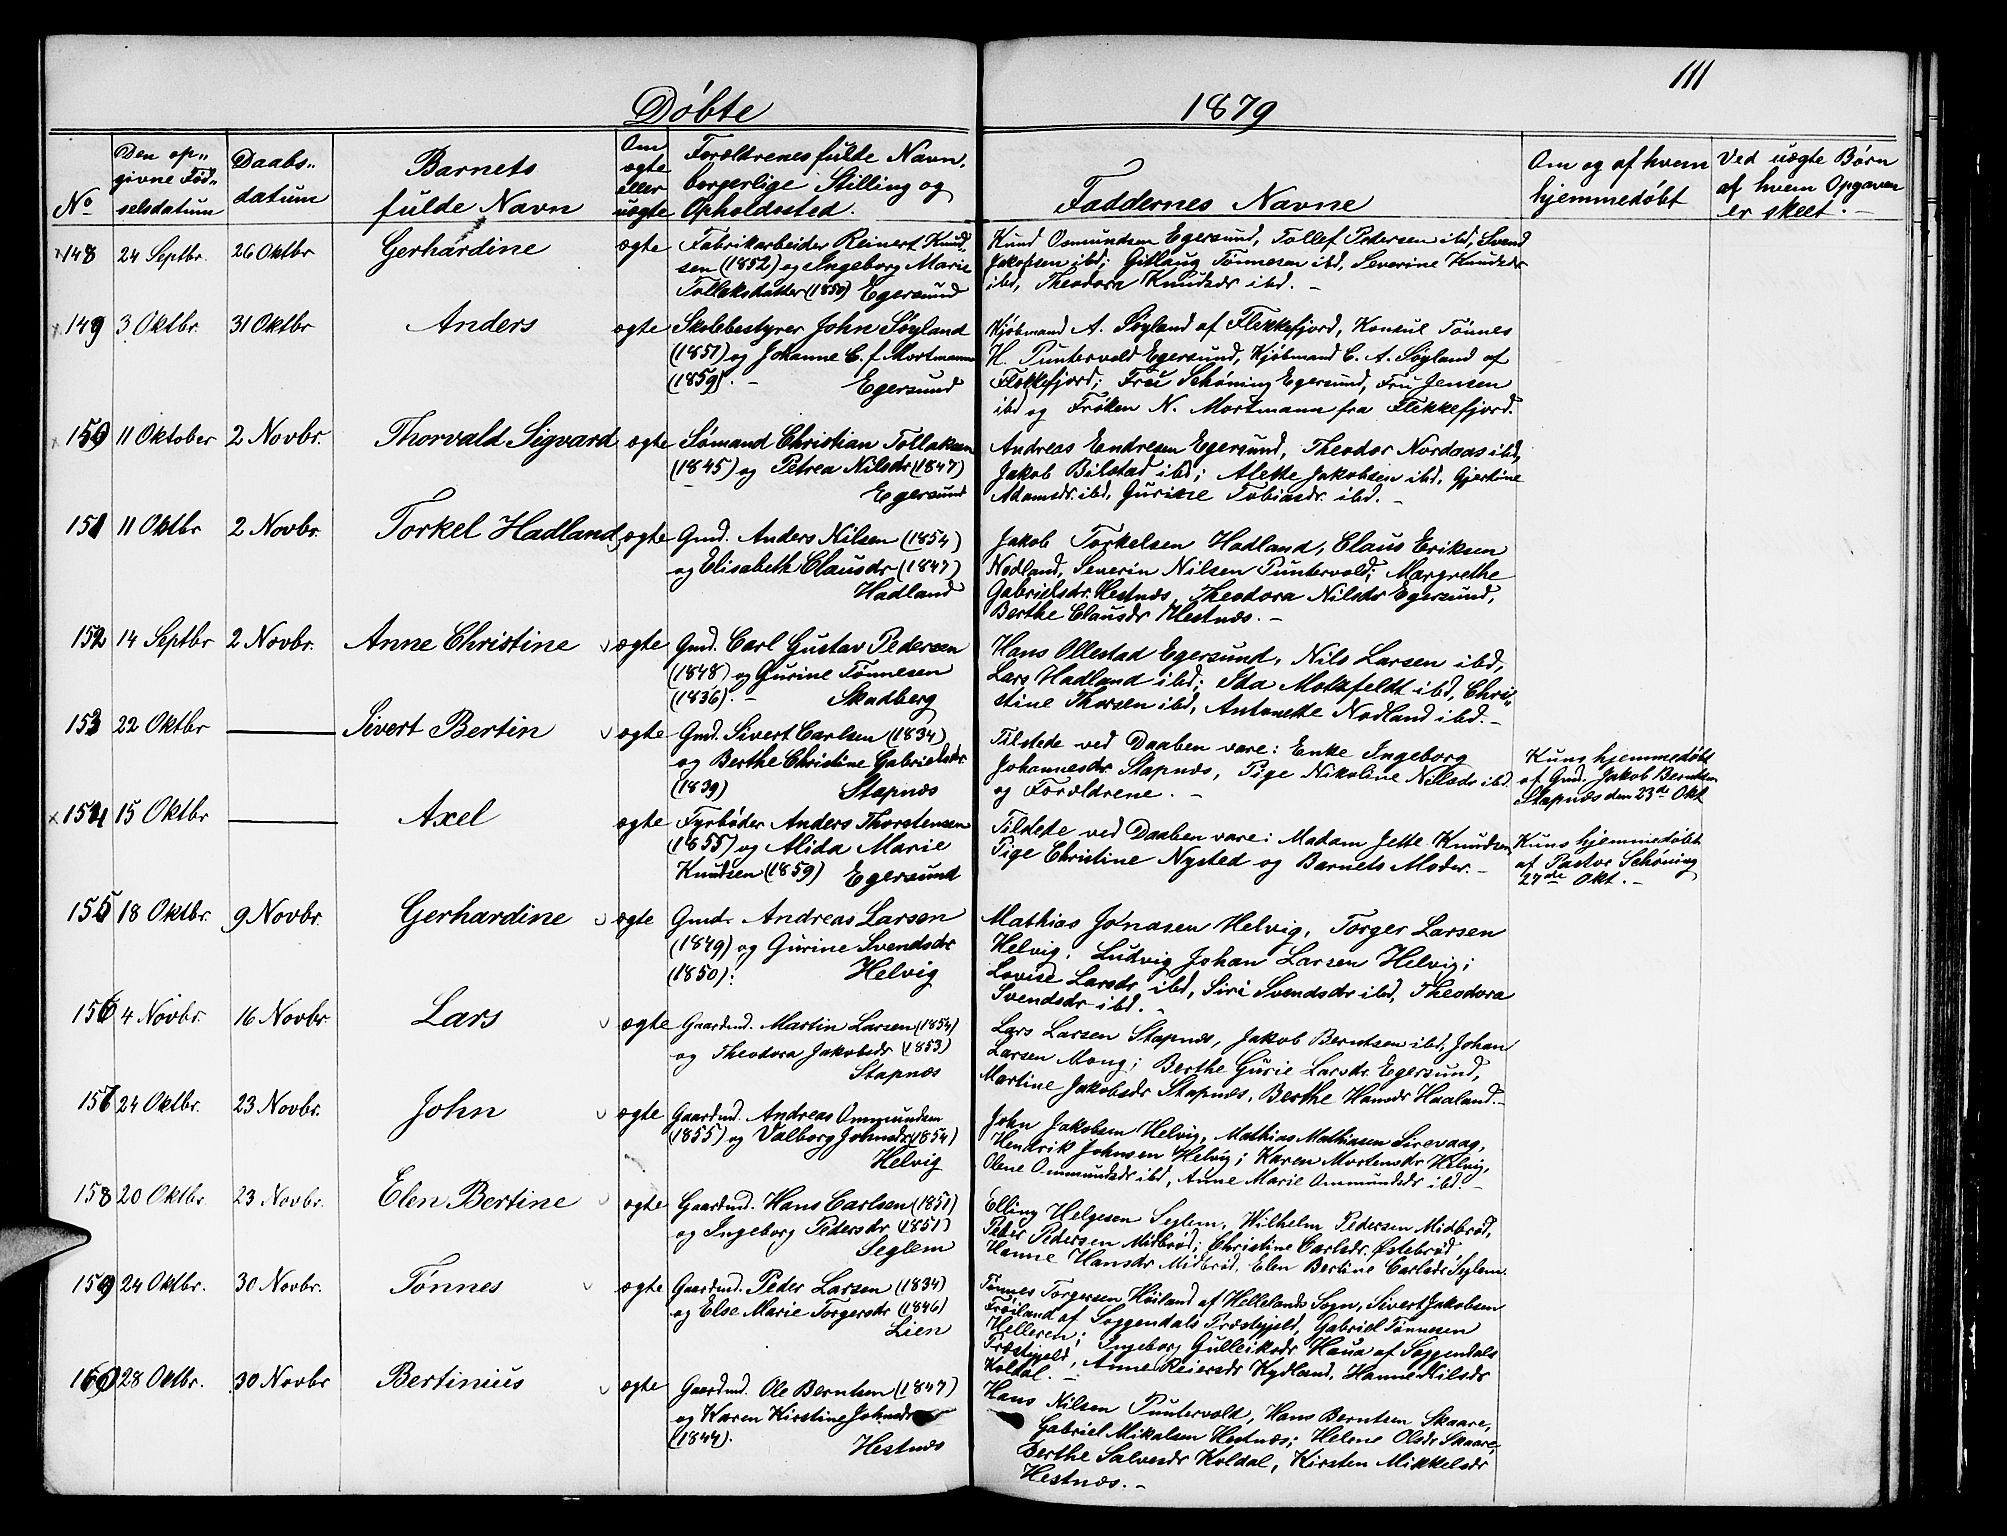 111
Døbte 1879
No
Den op-
givne Fød-
selsdatum
Daabs-
datum
Barnets
fulde Navn
Om
ægte
eller
uægte
Forældrenes fulde Navn,
borgerlige Stilling og
Opholdssted.
Faddernes Navne
Om og af hvem
hjemmedøbt
Ved uægte Børn
af hvem Opgaven
er skeet. -
148 24 Septbr. 26 Oktbr Gerhardine ægte
Fabrikarbeider Reinert Knud-
sen (1852) og Ingeborg Marie
Tollaksdatter (1850) Egersund
Knud Osmundsen Egersund, Tollef Pedersen ibd, Svend
Jakobsen ibd; Gitlaug Tønnesen ibd, Severine Knudsdr
ibd, Theodora Knudsdr ibd. -
149 3 Oktbr 31 Oktbr Anders ægte
Skolebestyrer John Søyland
(1851) og Johanne C. f. Mortmann
(1859). - Egersund
Kjøbmand A. Søyland af Flekkefjord, Konsul Tønnes
H. Puntervold Egersund, Kjøbmand C. A. Søyland af
Flekkefjord; Fru Schøning Egersund, Fru Jensen
ibd og Frøken N. Mortmann fra Flekkefjord.
150 11 Oktober 2 Novbr. Thorvald Sigvard ægte
Sømand Christian Tollaksen
(1845) og Petrea Nilsdr (1847)
Egersund
Andreas Endresen Egersund, Theodor Nordaas ibd,
Jakob Bilstad ibd; Alette Jakobsen ibd, Gjertine
Adamsdr. ibd, Gurine Tobiasdr. ibd. -
151 11 Oktbr 2 Novbr. Torkel Hadland ægte
Gmd. Anders Nilsen (1854)
og Elisabeth Clausdr (1847)
Hadland
Jakob Torkelsen Hadland, Claus Eriksen
Nodland, Severin Nilsen Puntervold; Margrethe
Gabrielsdr. Hestnæs, Theodora Nilsdr Egersund,
Berthe Clausdr Hestnæs. -
152 14 Septbr 2 Novbr. Anne Christine ægte
Gmd. Carl Gustav Pedersen
(1848) og Gurine Tønnesen
(1836). - Skadberg
Hans Ollestad Egersund, Nils Larsen ibd,
Lars Hadland ibd; Ida Motzfeldt ibd, Chri-
stine Thorsen ibd, Antonette Nodland ibd. -
153 22 Oktbr Sivert Bertin ægte
Gmd. Sivert Carlsen (1834)
og Berthe Christine Gabrielsdr
(1839) Stapnæs
Tilstede ved Daaben vare: Enke Ingeborg
Johannesdr Stapnæs, Pige Nikoline Nilsdr ibd
og Forældrene. -
Kuns hjemmedøbt
af Gmd. Jakob Berntsen
Stapnæs den 23de Okt
154 15 Oktbr Axel ægte
Fyrbøder Anders Thorstensen
(1855) og Alida Marie
Knudsen (1859) Egersund
Tilstede ved Daaben vare: Madam Jette Knudsen,
Pige Christine Nysted og Barnets Moder. -
Kuns hjemmedøbt
af Pastor Schøning
27de Okt. -
155 18 Oktbr. 9 Novbr. Gerhardine ægte
Gmd. Andreas Larsen
(1849) og Gurine Svendsdr
(1850). Helvig
Mathias Jonasen Helvig, Torger Larsen
Helvig, Ludvig Johan Larsen Helvig;
Lovise Larsdr ibd, Siri Svendsdr ibd, Theodora
Svendsdr ibd. -
156 4 Novbr. 16 Novbr. Lars ægte
Gaardmd. Martin Larsen (1854)
og Theodora Jakobsdr (1853)
Stapnæs
Lars Larsen Stapnæs, Jakob Berntsen ibd, Johan
Larsen Mong; Berthe Gurie Larsdr. Egersund,
Martine Jakobsdr Stapnæs, Berthe Hansdr Haaland. -
157 24 Oktbr. 23 Novbr. John ægte
Gaardmd. Andreas Ommundsen
(1855) og Valborg Johnsdr (1854)
Helvig
John Jakobsen Helvig, Mathias Mathiasen Sirevaag,
Hendrik Johnsen Helvig; Karen Mortensdr Helvig,
Olene Ommundsdr ibd, Anne Marie Ommundsdr ibd. -
158 20 Oktbr. 23 Novbr. Elen Bertine ægte
Gaardmd. Hans Carlsen (1851)
og Ingeborg Pedersdr (1851)
Seglem
Elling Helgesen Seglem, Wilhelm Pedersen Midbrød,
Peder Pedersen Midbrød; Christine Carlsdr. Østebrød,
Hanne Hansdr Midbrød, Elen Bertine Carlsdr Seglem.
159 24 Oktbr. 30 Novbr. Tønnes ægte
Gaardmd. Peder Larsen (1834)
og Else Marie Torgersdr (1846)
Lien
Tønnes Torgersen Høiland af Hellelands Sogn, Sivert Jakobsen
Frøiland af Soggendals Præstegjeld, Gabriel Tønnesen
Helleren; Ingeborg Gulleiksdr Haua af Soggendals
Præstegjeld, Anne Reiersdr Kydland, Hanne Nilsdr
Koldal. -
160 28 Oktbr. 30 Novbr Bertinius ægte
Gaardmd. Ole Berntsen (1847)
og Karen Kirstine Johnsdr
(1844). Hestnæs
Hans Nilsen Puntervold, Hans Berntsen Skaare,
Gabriel Mikalsen Hestnæs; Helene Olsdr Skaare,
Berthe Salvesdr Koldal, Kirsten Mikkelsdr
Hestnæs. -